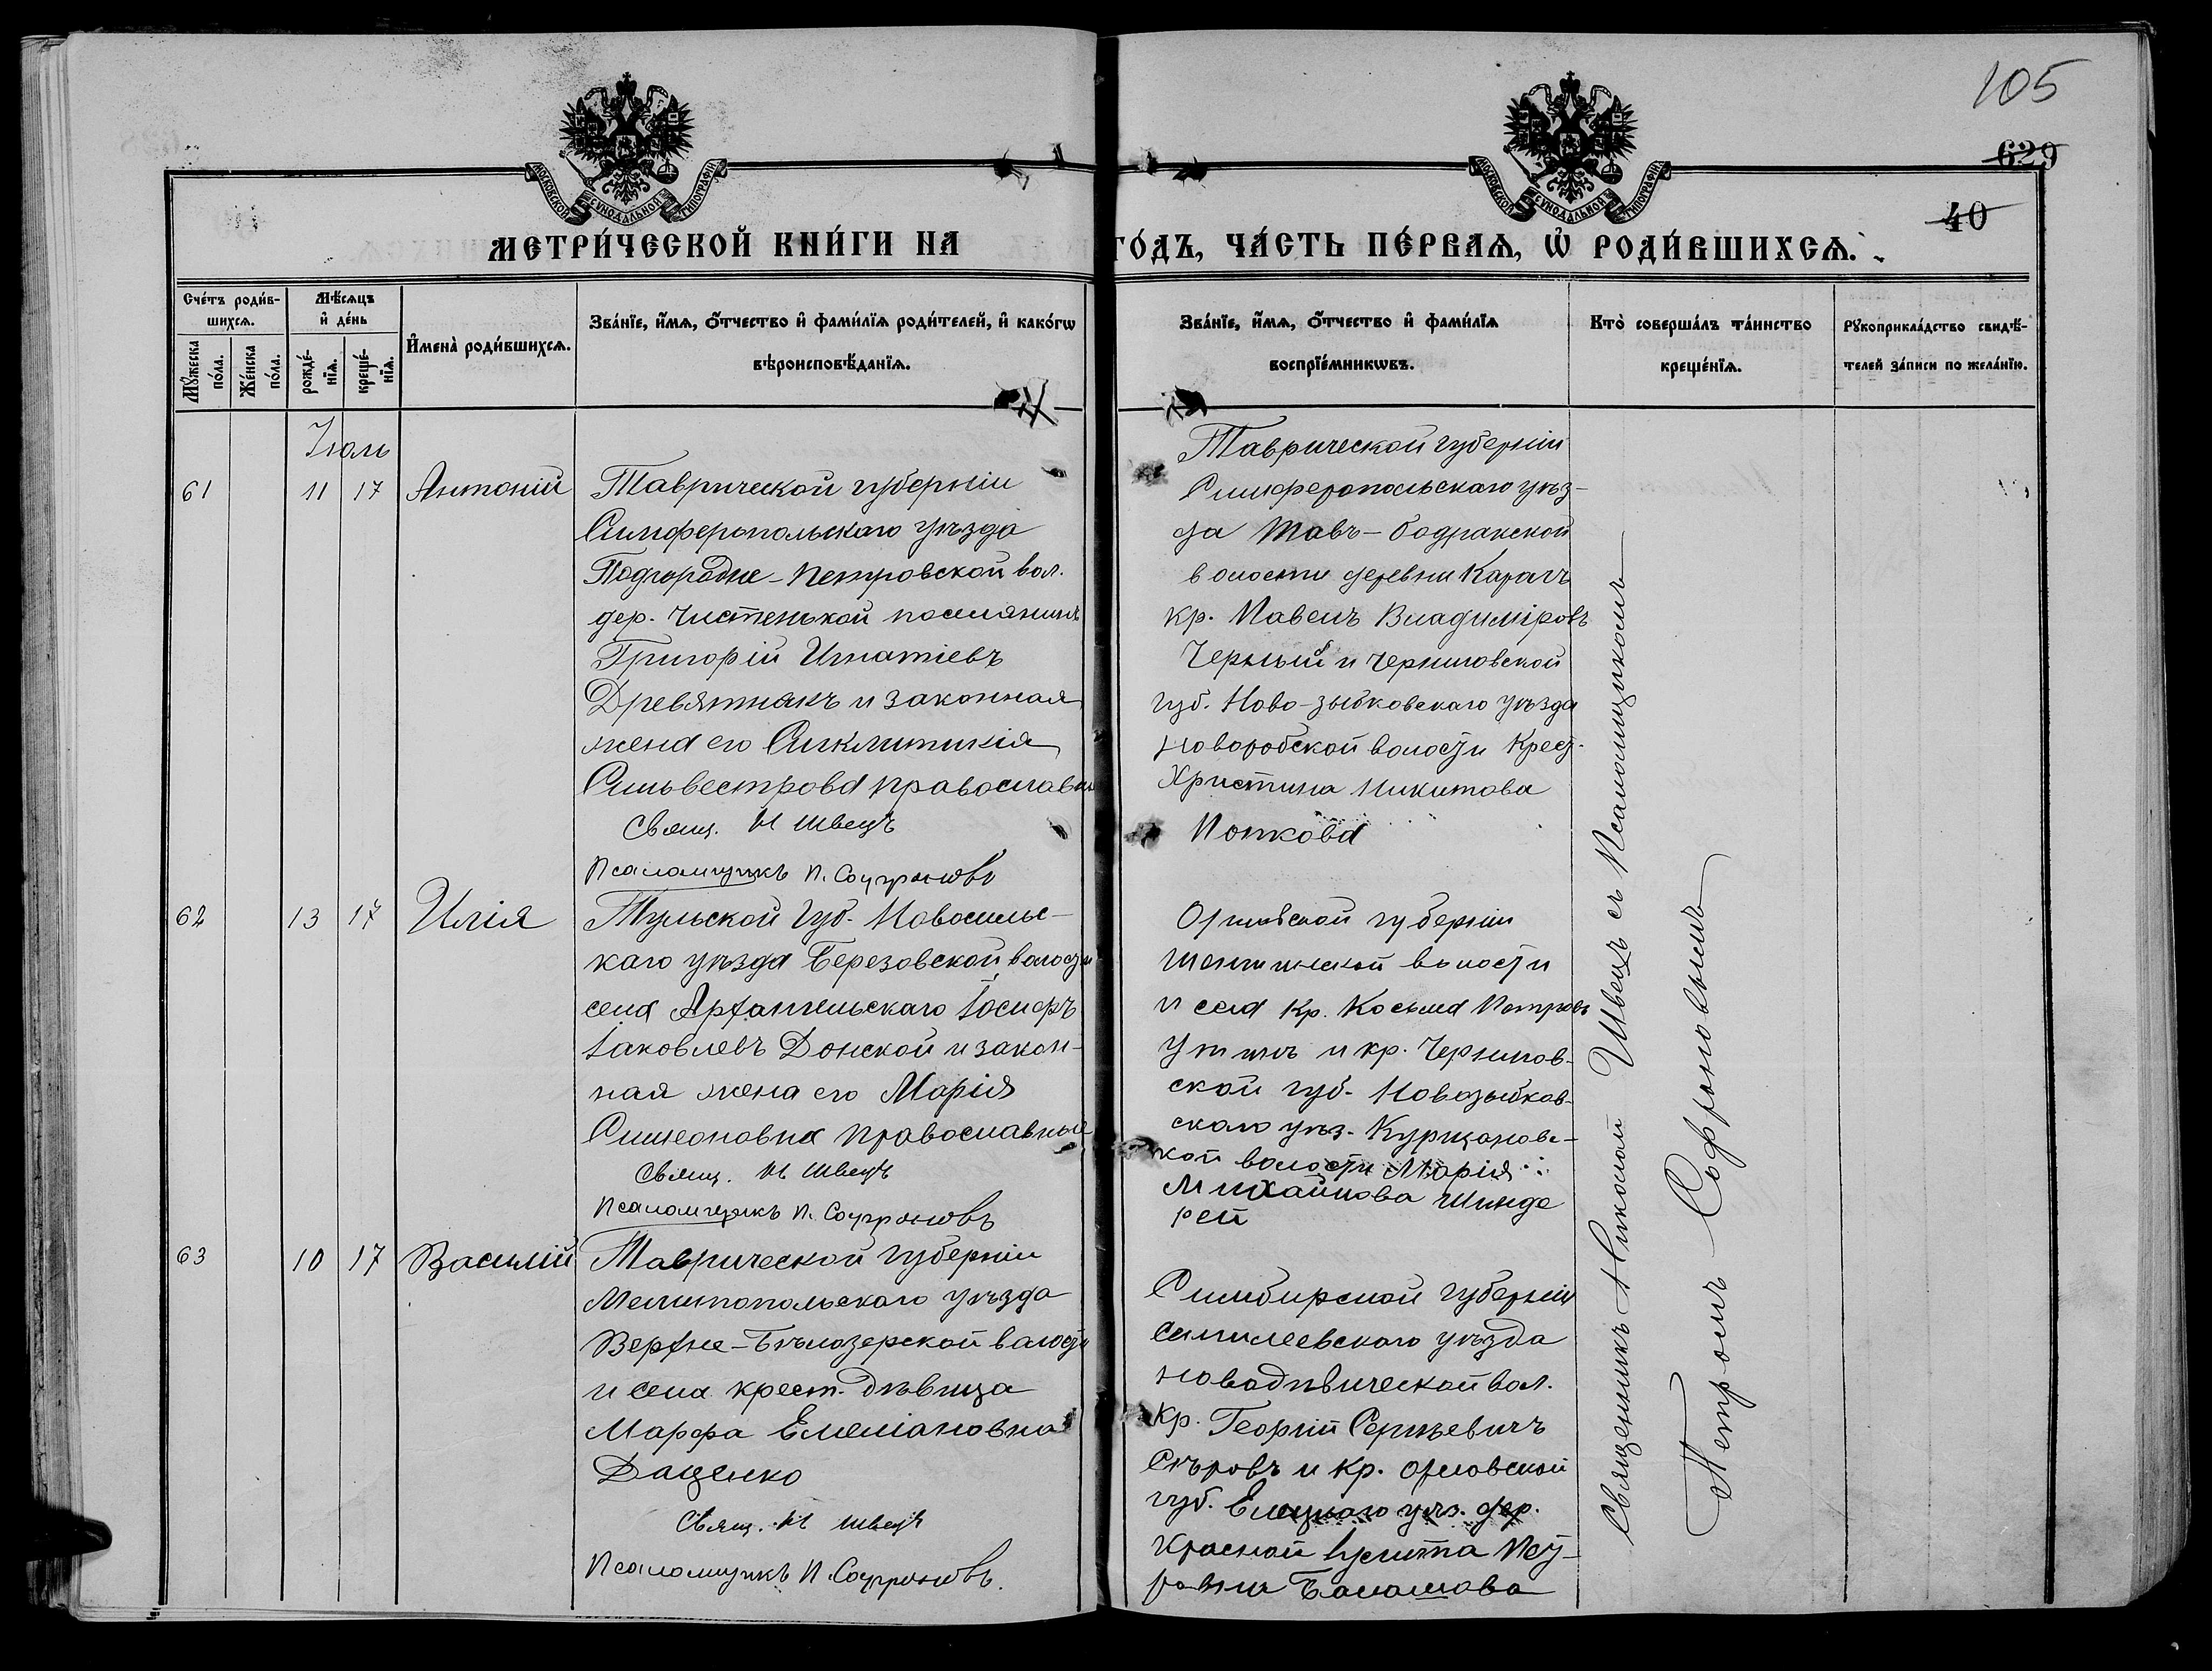 105
629
40
МОСКОВСКОЙ СУНОДАЛЬНОЙ ТИПОГРАФІИ
МОСКОВСКОЙ СУНОДАЛЬНОЙ ТИПОГРАФІИ
МЕТРИ́ЧЕСКОЙ КНИ́ГИ НА ГО́ДЪ, ЧА́СТЬ ПЕ́РВАѦ, Ѡ РОДИ́ВШИХСѦ.
Сче́тъ роди́в-
шихсѧ.
Мꙋ́жеска по́ла.
Же́нска по́ла.
Мѣ́сѧцъ
и҆ де́нь
рожде́-
нїѧ.
креще́-
нїѧ.
И҆мена̀ роди́вшихсѧ.
Зва́нїе, и҆́мѧ, ѻ҆́тчество и҆ фами́лїѧ роди́телей, и҆ како́гѡ
вѣроисповѣ́данїѧ.
Зва́нїе, и҆́мѧ, ѻ҆́тчество и҆ фами́лїѧ
воспрїе́мникѡвъ.
Кто̀ соверша́лъ та́инство
креще́нїѧ.
Рꙋкоприкла́дство свидѣ́-
телей за́писи по жела́нїю.
Іюль
61 11 17 Антоній
Таврической губерніи
Симферопольскаго уѣзда
Подгородне-Петровской вол.
дер. Чистенькой поселянинъ
Григорій Игнатіевъ
Древятникъ и законная
жена его Синклитикія
Сильвестрова православные
Свящ. Н Швецъ
Псаломщикъ П. Софроновъ
Таврической губерніи
Симферопольскаго уѣз-
да Тавъ-Бодракской
волости деревни Карачъ
кр. Павелъ Владиміровъ
Черный и Черниговской
губ. Ново-зыбковскаго уѣзда
Новоробской волости Крест.
Христина Никитова
Попкова
62 13 17 Илія
Тульской Губ. Новосильс-
каго уѣзда Березовской волости
села Архангельскаго Іосифъ
Іаковлевъ Донской и закон-
ная жена его Марія
Симеоновна православные
Свящ. Н Швецъ
Псаломщикъ П. Софроновъ
Орловской губерніи
волости
и села Кр. Косьма Петровъ
и кр. Чернигов-
ской губ. Новозыбков-
скаго уѣз.
кой волости Марія
Михайлова Шинде
рей
63 10 17 Василій
Таврической Губерніи
Мелитопольскаго уѣзда
Верхне-Бѣлозерской волости
и села крест. дѣвица
Марфа Емеліановна
Даценко
Свящ. Н Швецъ
Псаломщикъ П. Софроновъ.
Симбирской губерніи
Сингилеевскаго уѣзда
Новодѣвической вол.
Кр. Георгій Сергѣевичъ
Сѣровъ и кр. Орловской
губ. Елецкаго уѣз. дер.
Красной
Балашова
Священникъ Николай Швецъ съ Псаломщикомъ
Петромъ Софроновымъ